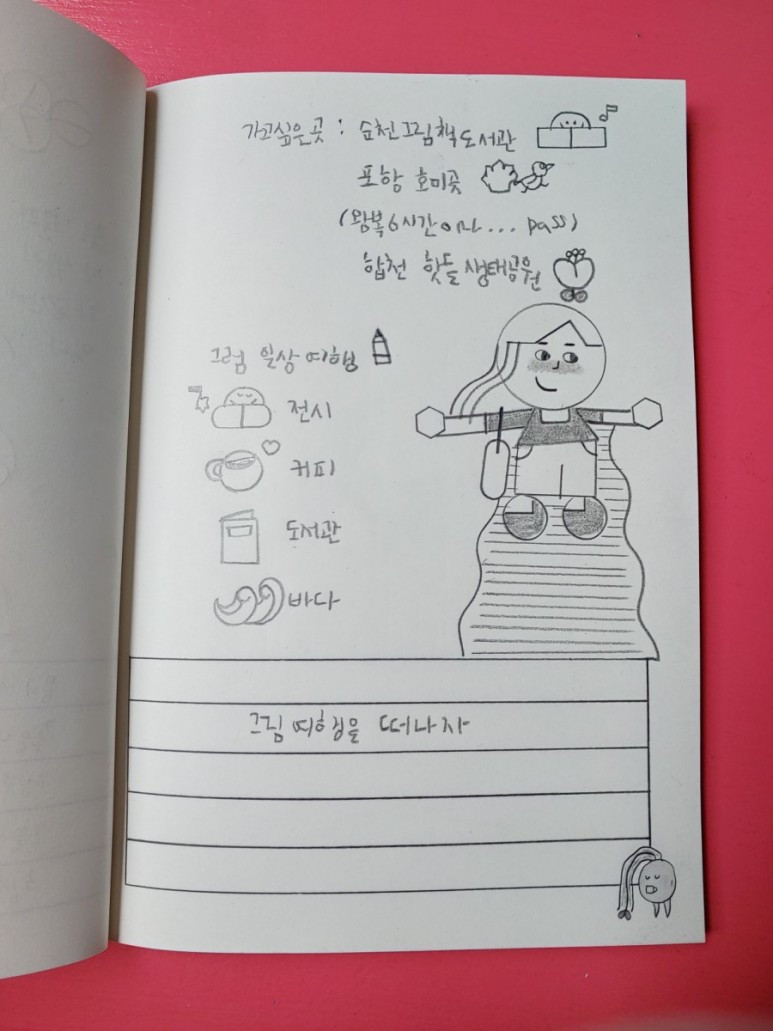 가고싶은곳 : 순천그림책도서관
포항 호미곶
(왕복6시간이라... pass)
합천 핫들생태공원
그럼 일상여행
전시
커피
도서관
바다
그림여행을 떠나자